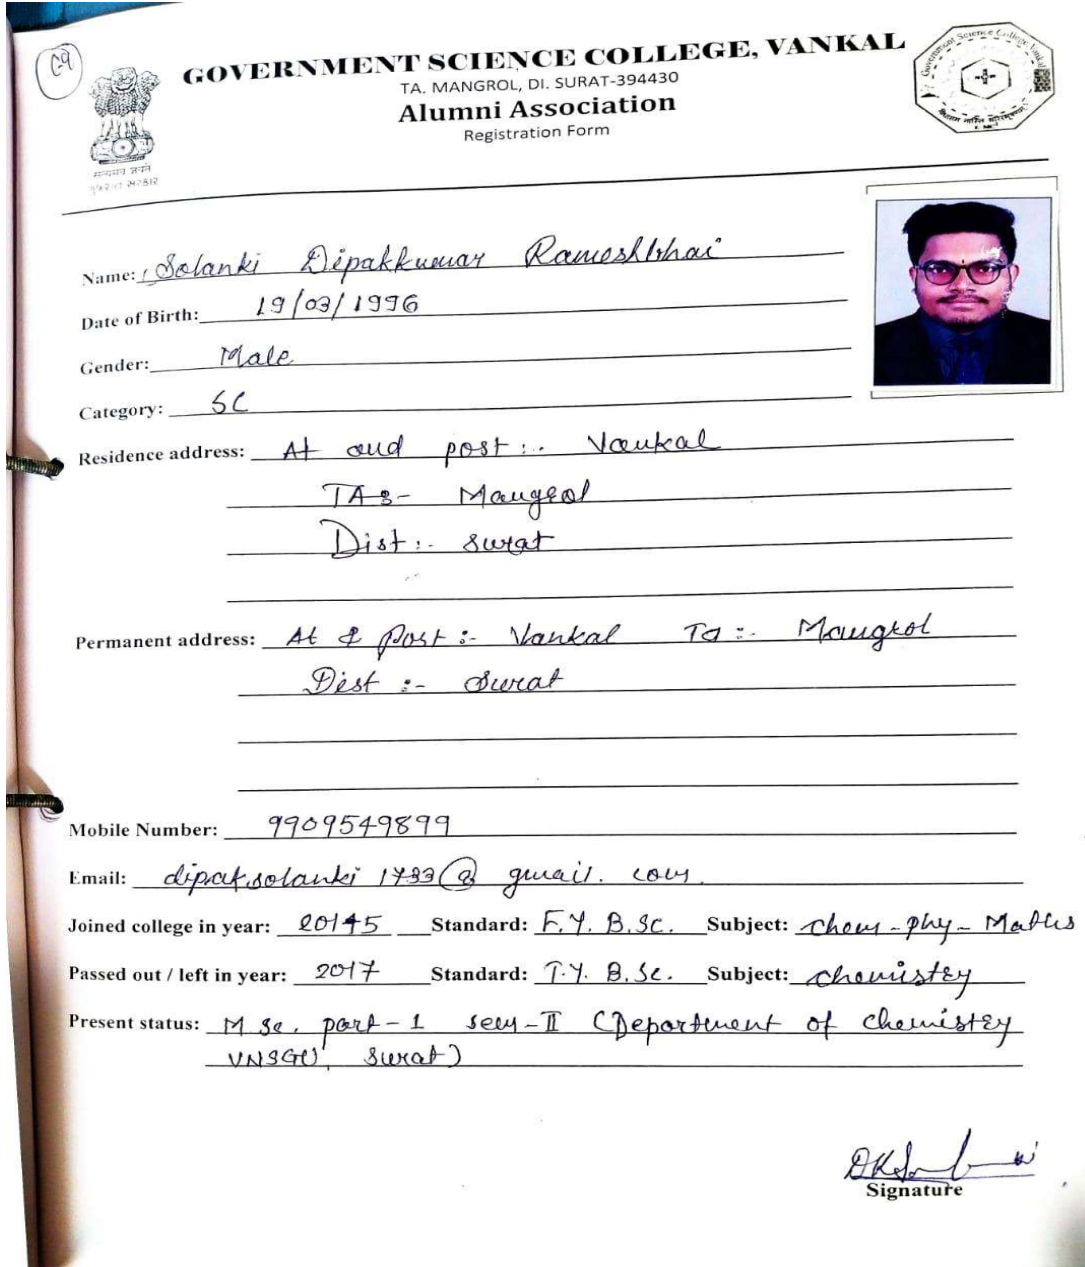 C-9
GOVERNMENT SCIENCE COLLEGE, VANKAL
TA. MANGROL, DI. SURAT-394430
Alumni Association
Registration Form
Government Science College Vankal
Name: Solanki Dipakkumar Rameshbhai
Date of Birth: 19/03/1996
Gender: Male
Category: SC
Residence address: At and post:- Vankal
TA:- Mangrol
Dist:- Surat
Permanent address: At & Post :- Vankal Ta :- Mangrol
Dist :- Surat
Mobile Number: 9909549899
Email: dipaksolanki 1733@gmail.com.
Joined college in year: Standard: F.Y. B.Sc. Subject: Chem-Phy-Maths
Passed out / left in year: 2017 Standard: T.Y. B.Sc. Subject: Chemistry
Present status: M Sc. part-1 sem-II (Department of Chemistry
VNSGU, Surat)
Signature